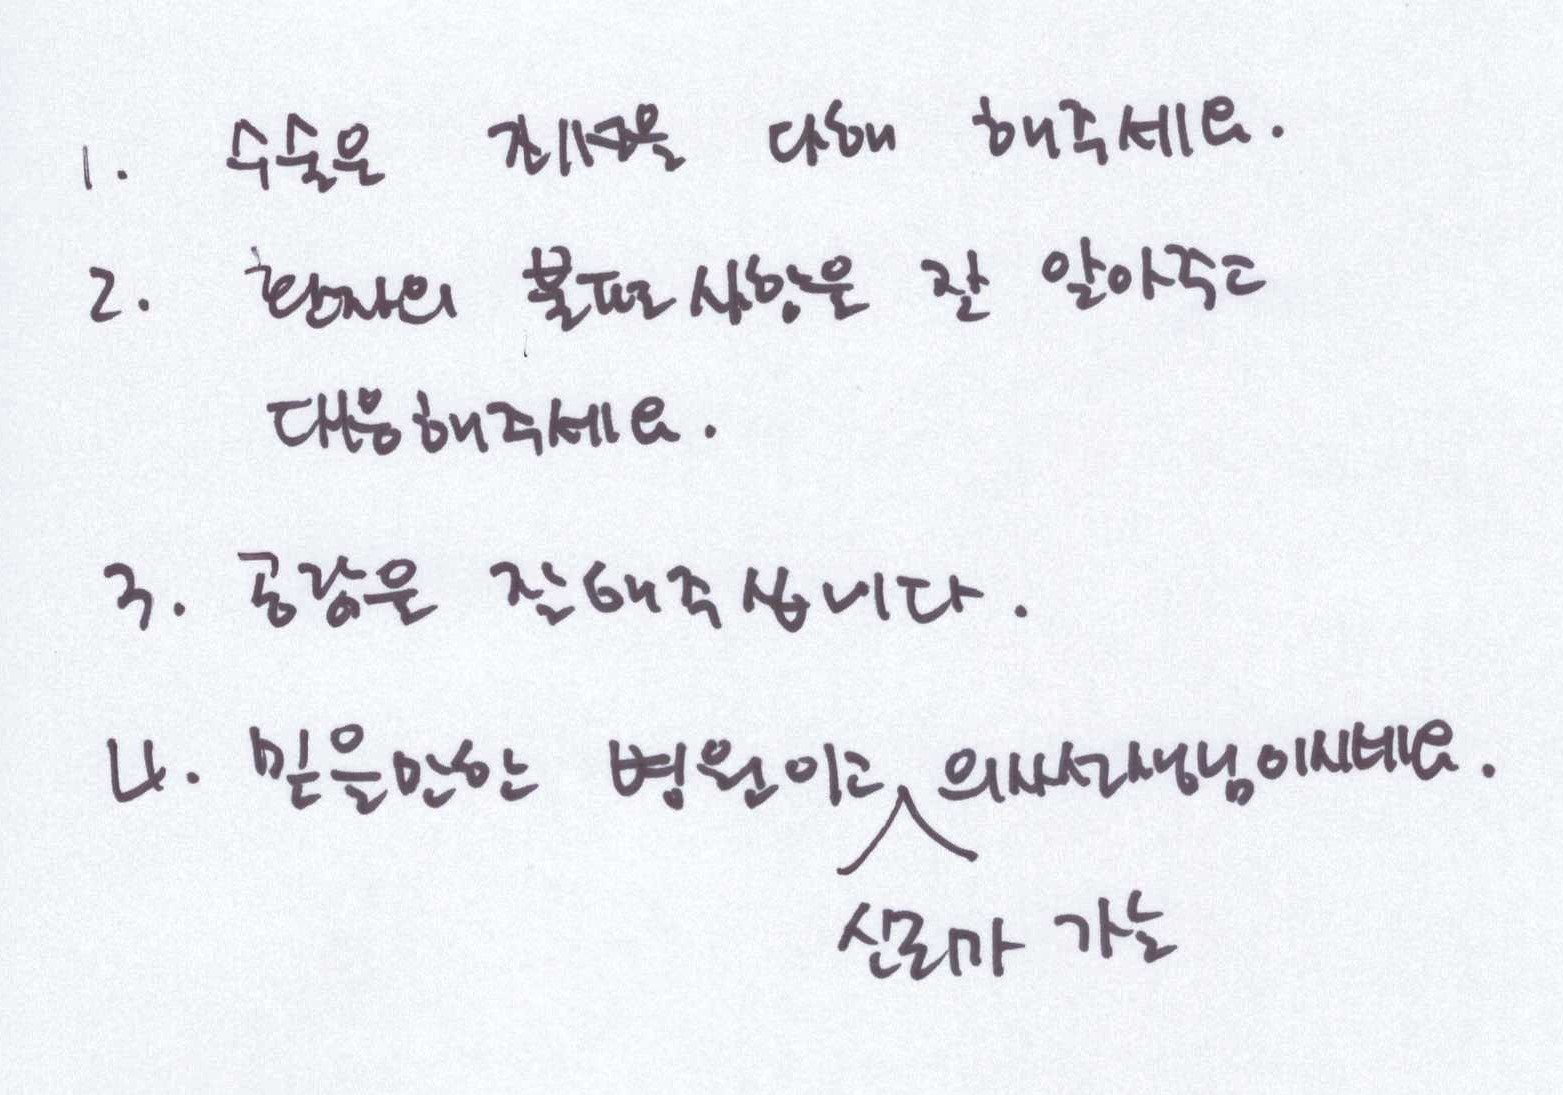 1. 수술은 진심을 다해 해주세요.
2. 환자의 불편사항은 잘 알아주고
대응해주세요.
3. 공감은 잘해주십니다.
4. 믿을만한 병원이고 의사선생님이시네요.
신뢰가 가는